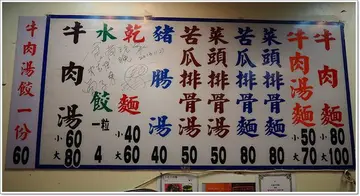 牛肉湯麵 小80 大100
牛肉湯麵 小50 大70
菜頭排骨麵 80
苦瓜排骨麵 80
菜頭排骨湯 50
苦瓜排骨湯 50
豬腸湯 40
乾麵 小40 大60
水餃 一粒 4
牛肉湯 小60 大80
牛肉湯餃一份 60